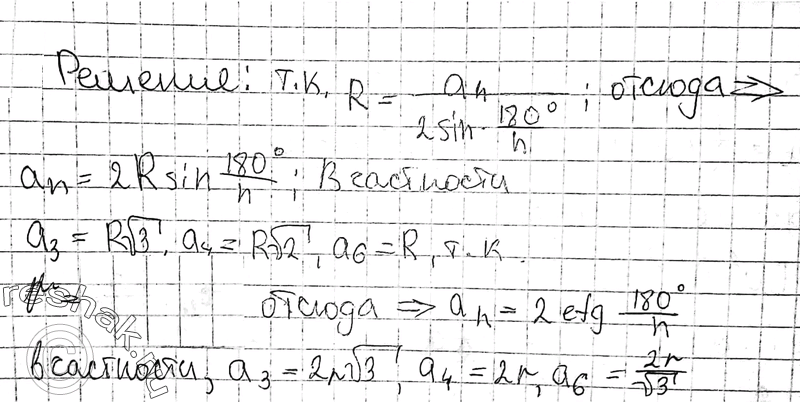 Решение: т.к. R = aₙ / (2 sin · 180°/n); отсюда ⇒
aₙ = 2R sin 180°/n; В частности
a₃ = R√3, a₄ = R√2, a₆ = R, т.к.
отсюда ⇒ aₙ = 2 r tg 180°/n
в частности, a₃ = 2r√3, a₄ = 2r, a₆ = 2r/√3
reshak.ru